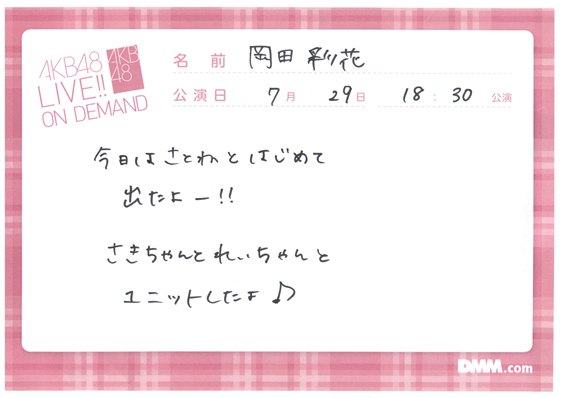 AKB48
LIVE!!
ON DEMAND
AKB
48
名前 岡田彩花
公演日 7月 29日 18:30 公演
今日はさとねとはじめて
出たよー!!
さきちゃんとれいちゃんと
ユニットしたよ♪
DMM.com